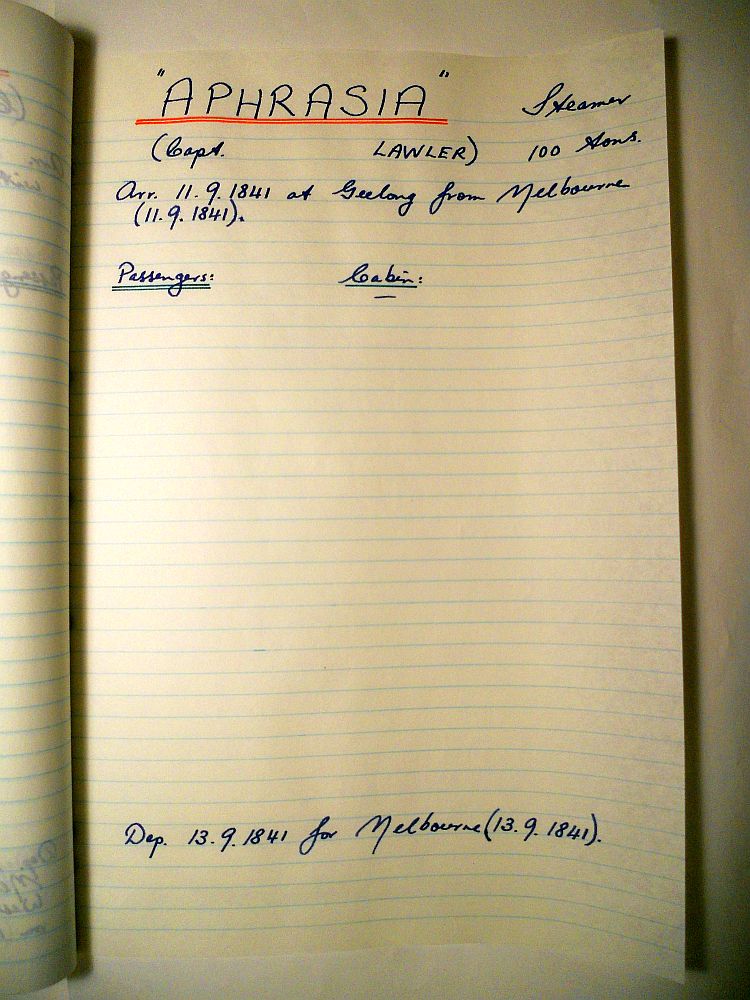 "APHRASIA" Steamer
(Capt. LAWLER) 100 tons.
Arr. 11.9.1841 at Geelong from Melbourne
(11.9.1841).
Passengers: Cabin:
Dep. 13.9.1841 for Melbourne (13.9.1841).